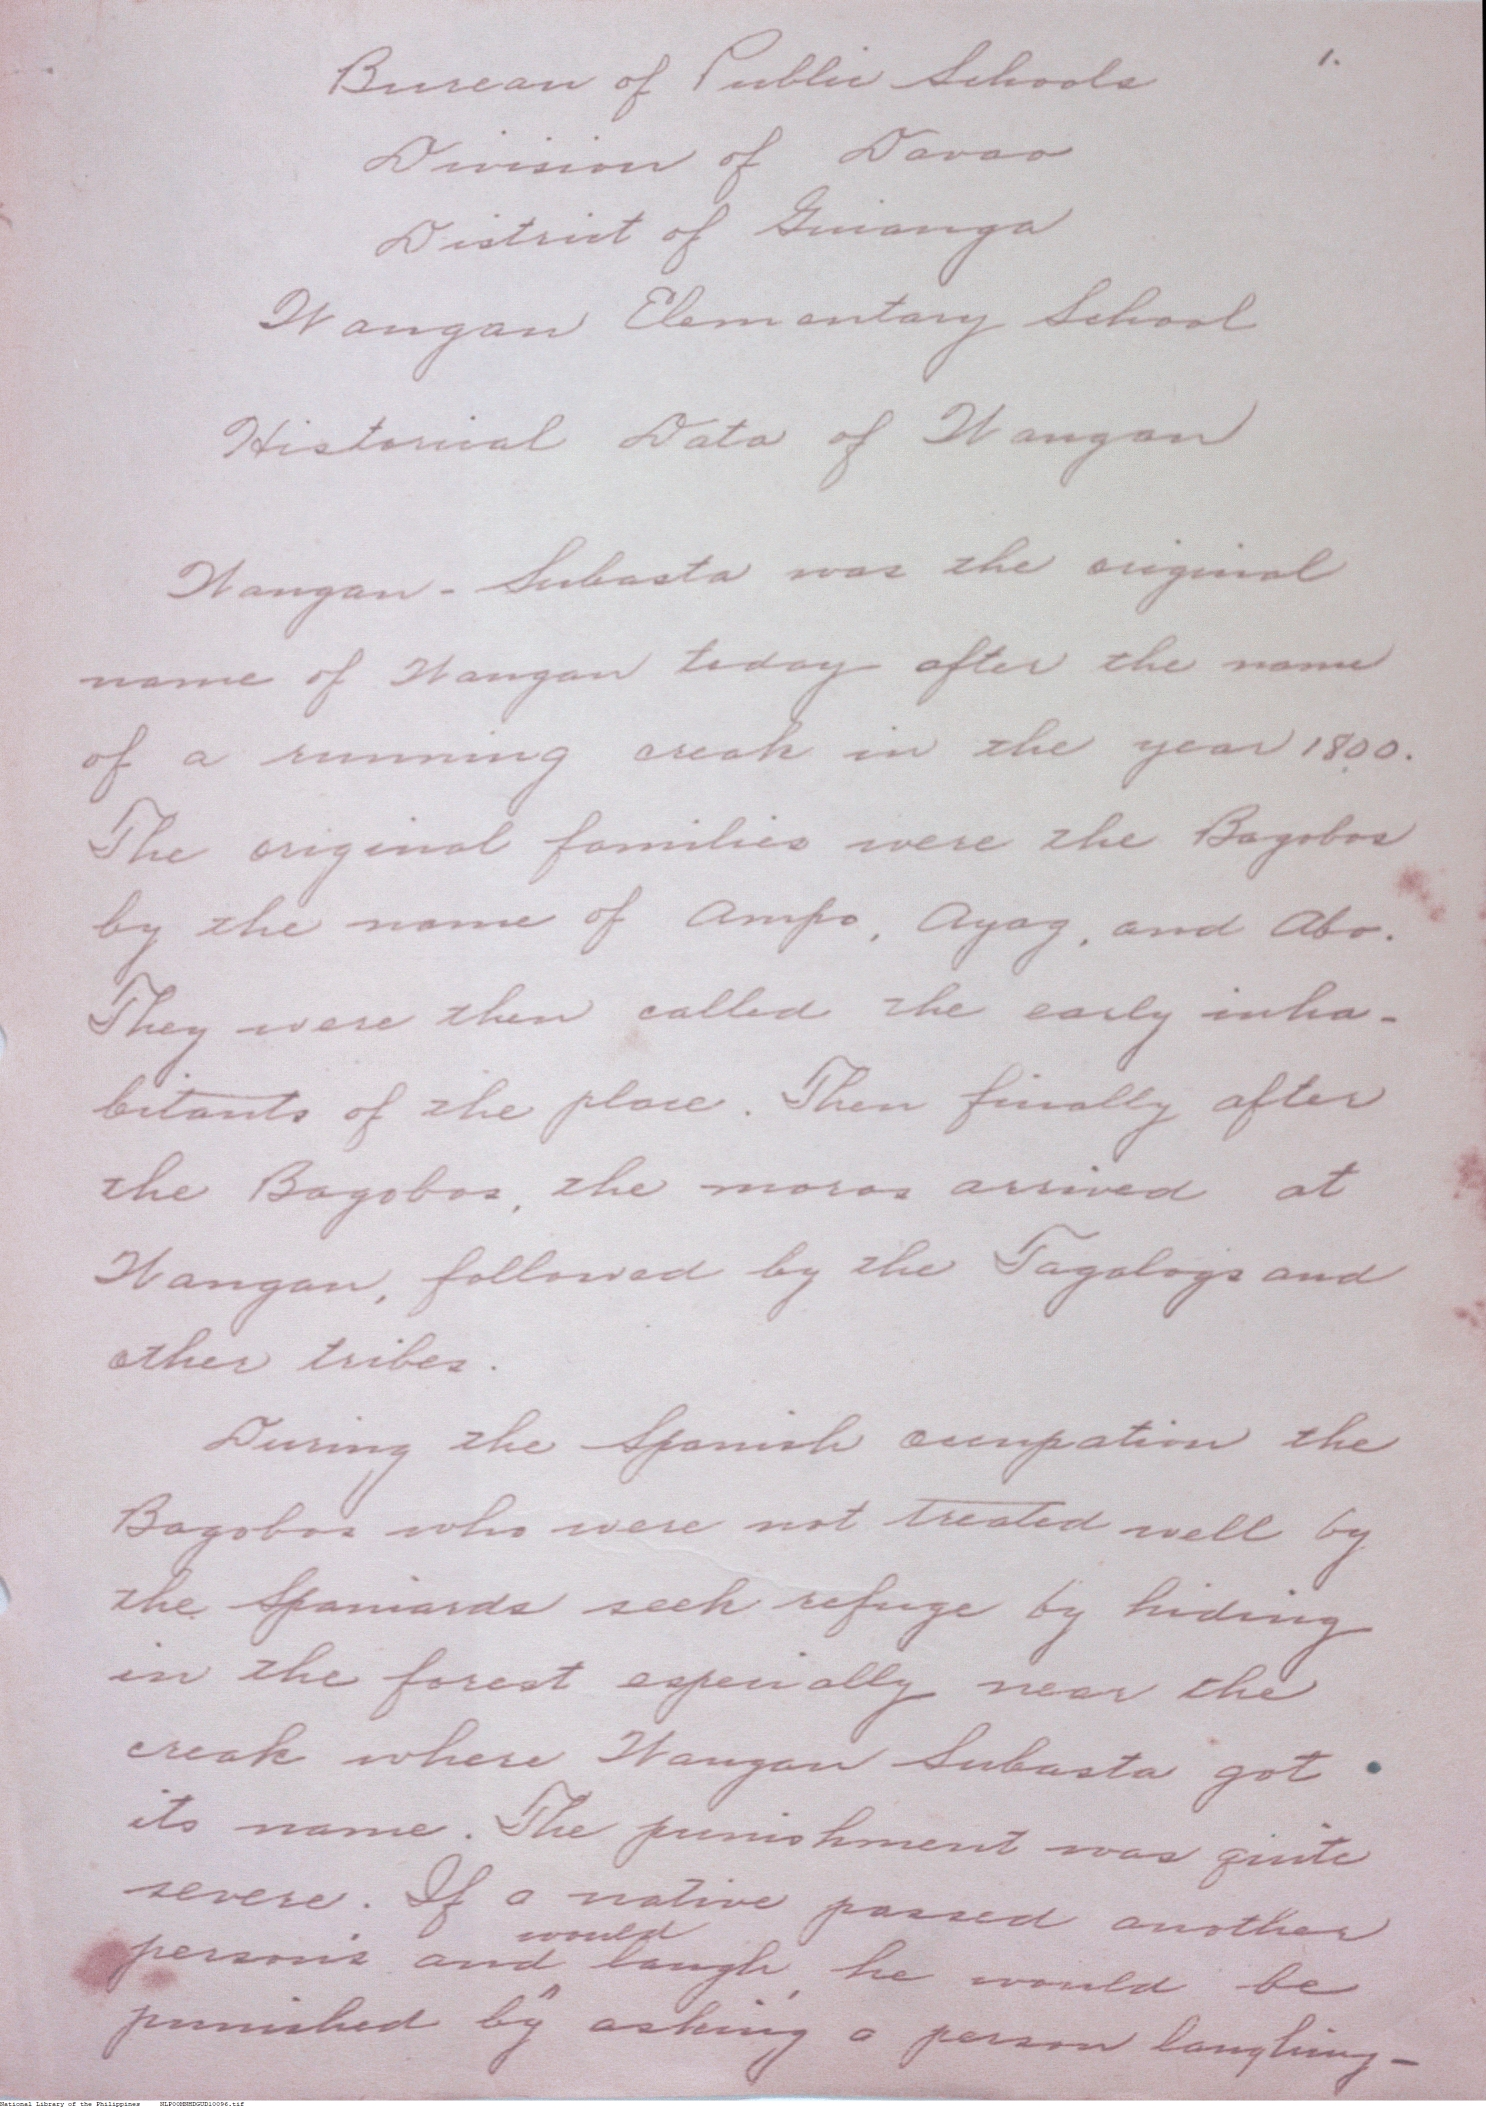 1.
Bureau of Public Schools
Division of Davao
District of Guianga
Wangan Elementary School
Historical Data of Wangan
Wangan - Subasta was the original
name of Wangan today after the name
of a running creak in the year 1800.
The original families were the Bagobos
by the name of Ampo, Ayag, and Abo.
They were then called the early inha-
bitants of the place. Then finally after
the Bagobos, the moros arrived at
Wangan, followed by the Tagalogs and
other tribes.
During the Spanish occupation the
Bagobos who were not treated well by
the Spaniards seek refuge by hiding
in the forest especially near the
creak where Wangan Subasta got
its name. The punishment was quite
severe. If a native passed another
persons and would laugh, he would be
punished by asking a person laughing -
National Library of the Philippines NLP00MNHDGUD10096.tif